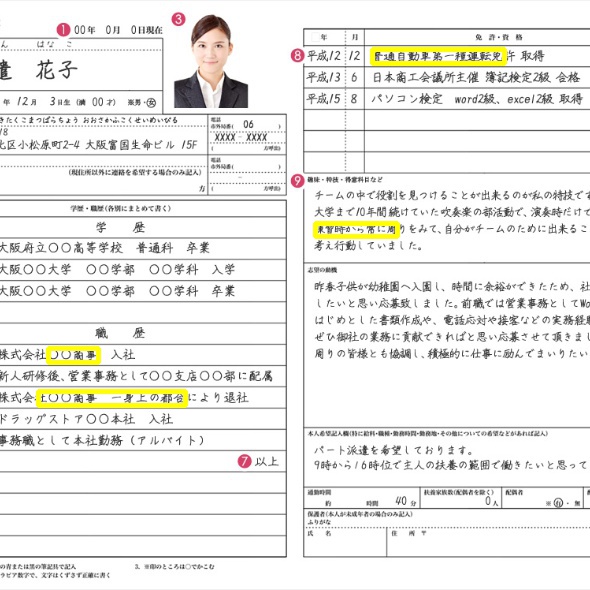 1 00年 0月 0日現在
3
ん はなこ
遣 花子
年 12月 3日生(満 00才) ※男・女
きたくこまつばらちょう おおさかふこくせいめいびる
18
北区小松原町2-4 大阪富国生命ビル 15F
電話
市外局番( 06 )
XXXX - XXXX
(現住所以外に連絡を希望する場合のみ記入)
方
電話
市外局番( )
(方呼出)
学歴・職歴(各別にまとめて書く)
学 歴
大阪府立〇〇高等学校 普通科 卒業
大阪〇〇大学 〇〇学部 〇〇学科 入学
大阪〇〇大学 〇〇学部 〇〇学科 卒業
職 歴
株式会社〇〇商事 入社
新人研修後、営業事務として〇〇支店〇〇部に配属
株式会社〇〇商事 一身上の都合により退社
ドラッグストア〇〇本社 入社
事務職として本社勤務(アルバイト)
7 以上
の青または黒の筆記具で記入 3、※印のところは〇でかこむ
ラビア数字で、文字はくずさず正確に書く
年 月 免許・資格
8 平成12 12 普通自動車第一種運転免許 取得
平成13 6 日本商工会議所主催 簿記検定2級 合格
平成15 8 パソコン検定 word2級、excel2級 取得
9 趣味・特技・得意科目など
チームの中で役割を見つけることが出来るのが私の特技です
大学まで10年間続けていた吹奏楽の部活動で、演奏時だけで
練習時から常に周りをみて、自分がチームのために出来るこ
考え行動していました。
志望の動機
昨春子供が幼稚園へ入園し、時間に余裕ができたため、社
したいと思い応募致しました。前職では営業事務としてWo
はじめとした書類作成や、電話応対や接客などの実務経
ぜひ御社の業務に貢献できればと思い応募させて頂きまし
周りの皆様とも協調し、積極的に仕事に励んでまいりたい
本人希望記入欄(特に給料・職種・勤務時間・勤務地・その他についての希望などがあれば記入)
パート派遣を希望しております。
9時から16時位で主人の扶養の範囲で働きたいと思って
通勤時間 扶養家族数(配偶者を除く) 配偶者
約 時間 40分 0人 ※有・無
保護者(本人が未成年者の場合のみ記入)
ふりがな
氏 名 住 所 〒